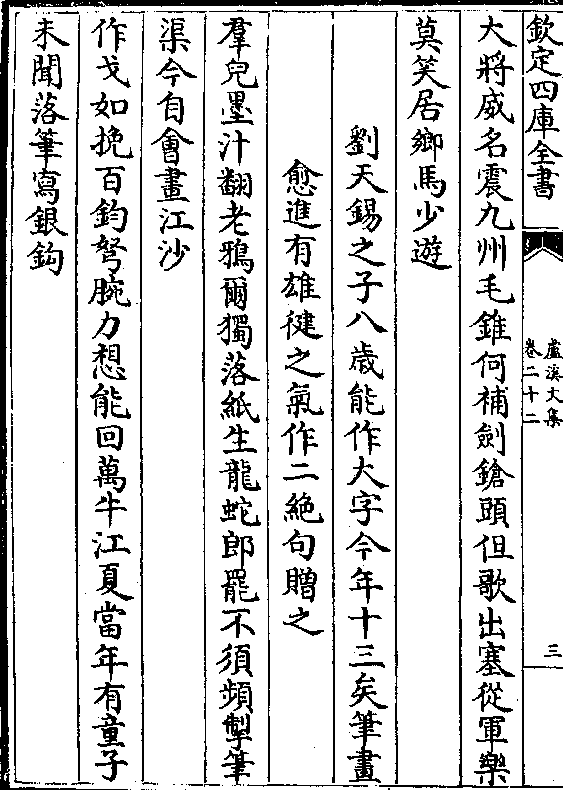 欽定四庫全書
盧溪文集
卷二十二
三
大將威名震九州毛錐何補劍鎗頭但歌出塞從軍樂
莫笑居鄉馬少遊
劉天錫之子八歳能作大字今年十三矣筆畫
愈進有雄健之氣作二絶句贈之
羣兒墨汁翻老鴉爾獨落紙生龍蛇郎罷不須頻掣筆
渠今自會畫江沙
作戈如挽百鈞弩腕力想能回萬牛江夏當年有童子
未聞落筆寫銀鈎